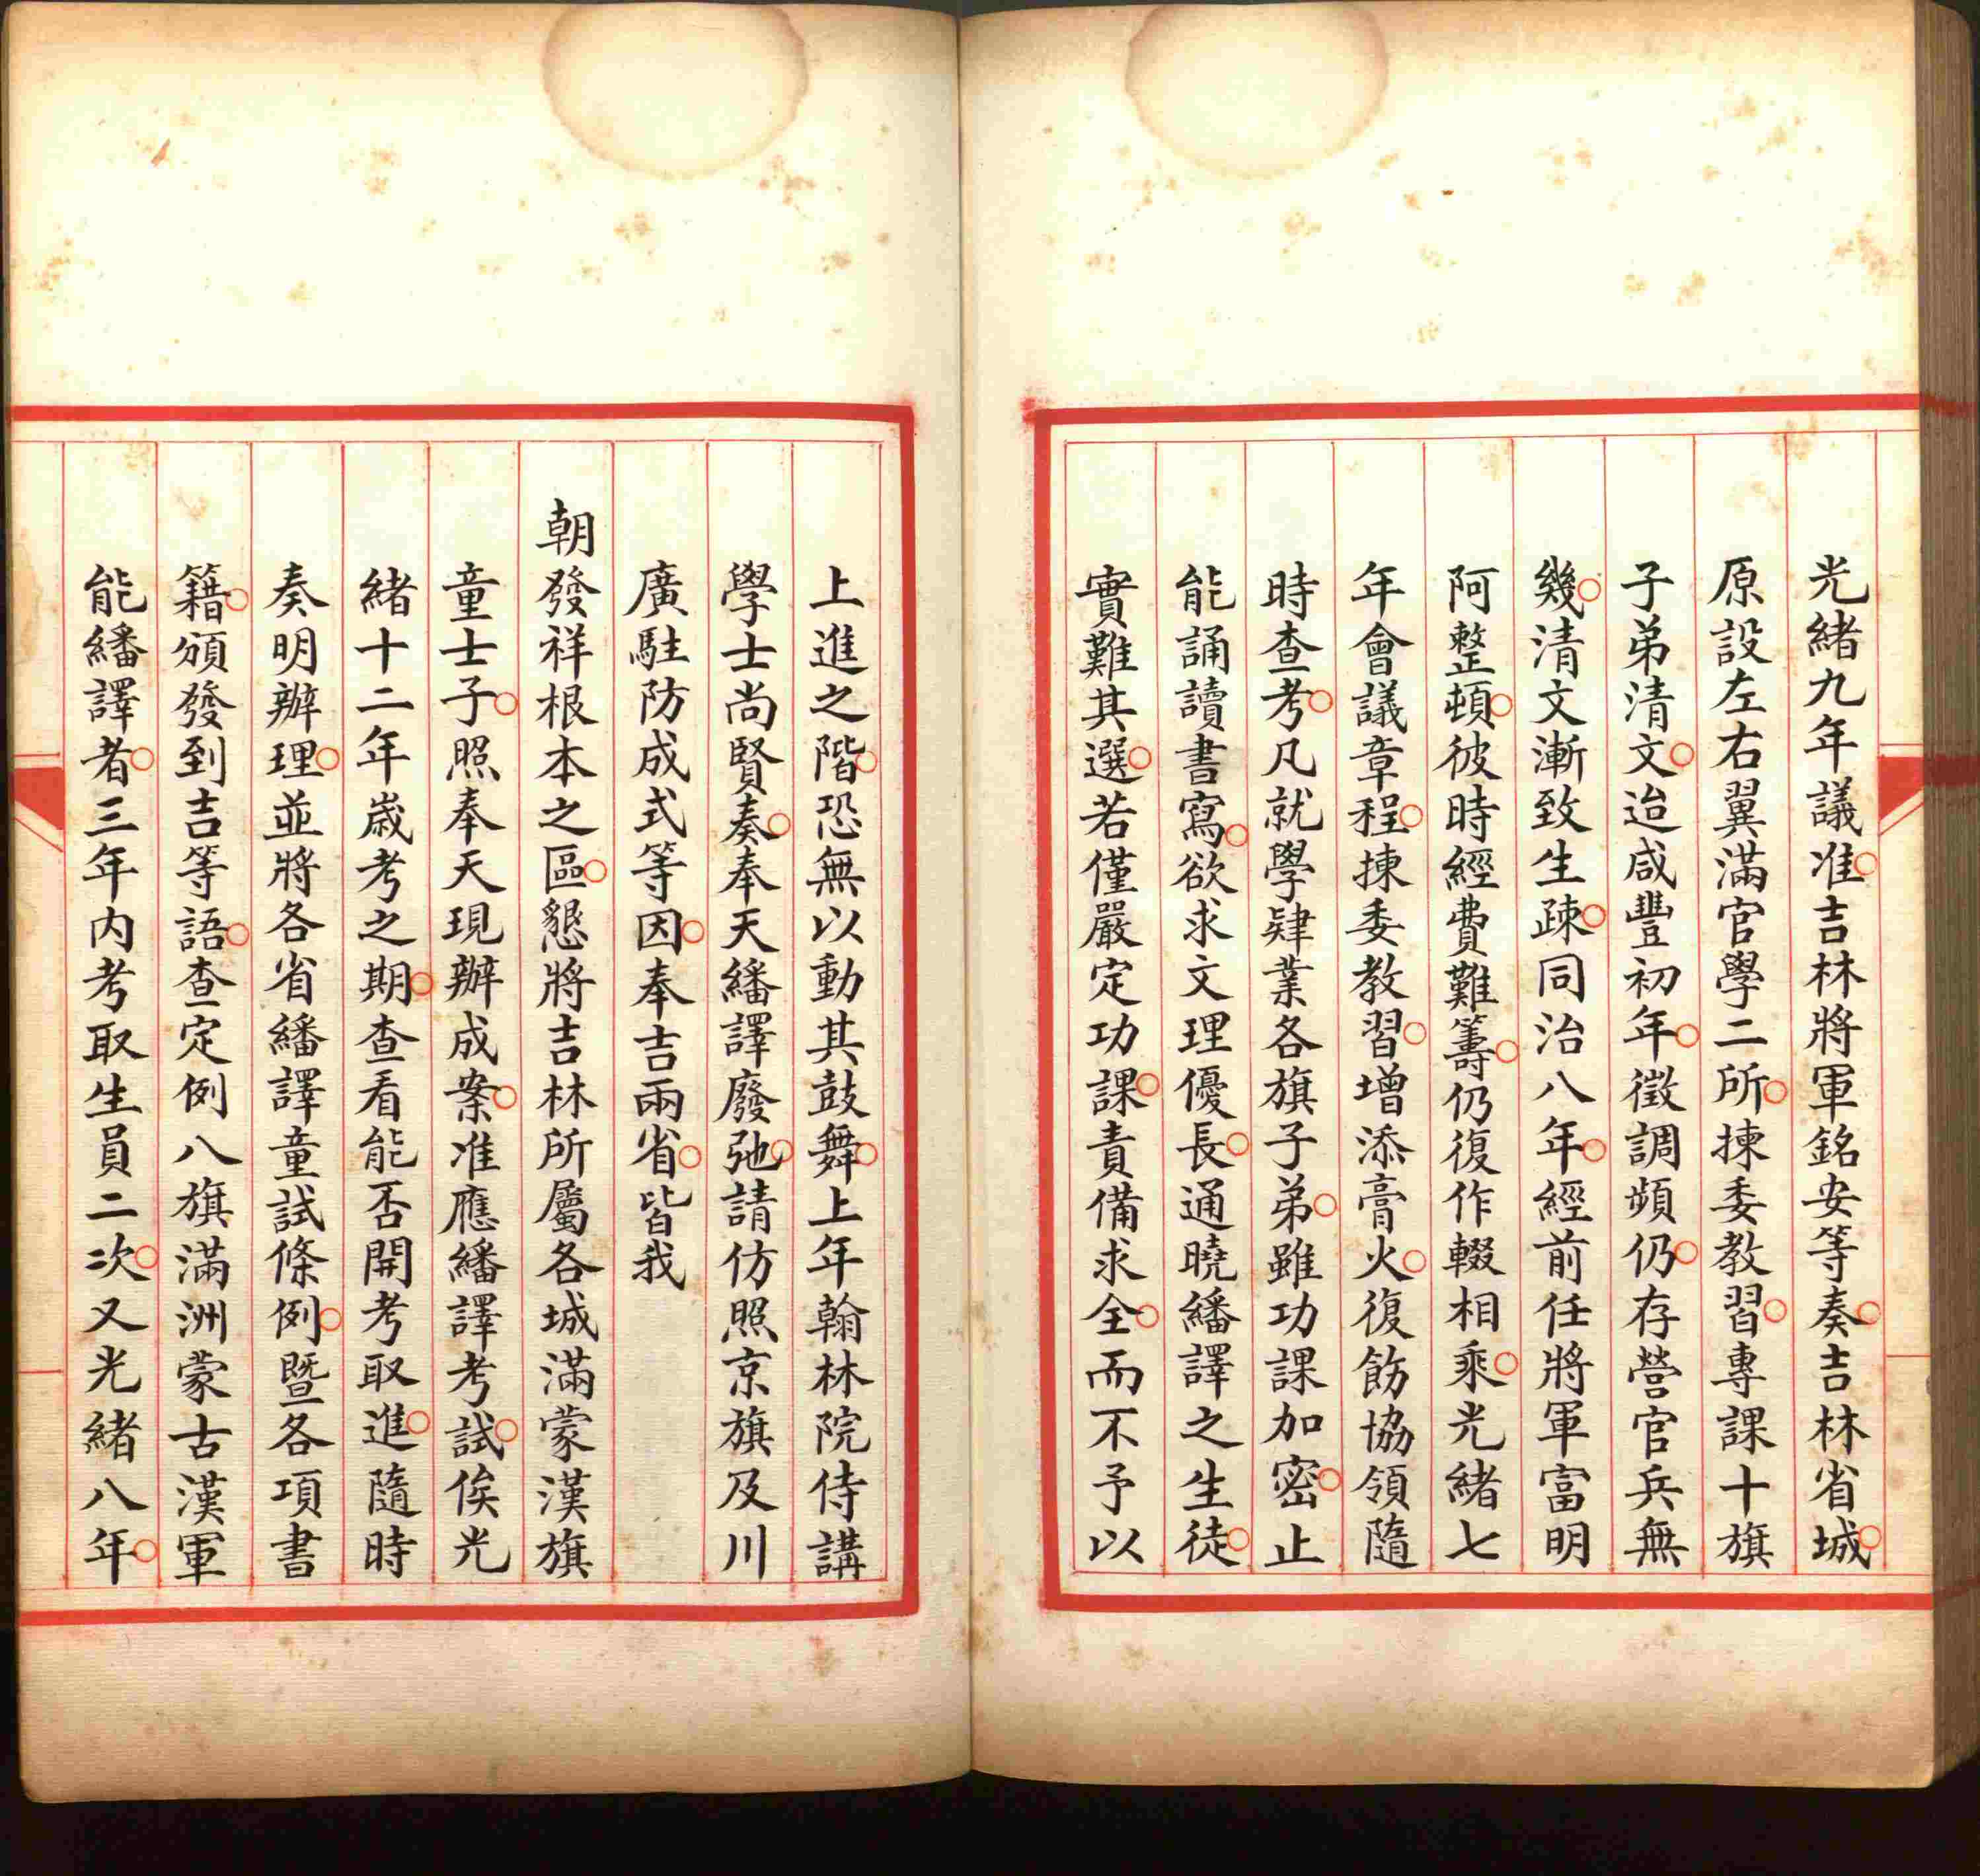 光緒九年議准吉林將軍銘安等奏吉林省城
原設左右翼滿官學二所揀委教習專課十旗
子弟清文迨咸豐初年徵調頻仍存營官兵無
幾清文漸致生疎同治八年經前任將軍富明
阿整頓彼時經費難籌仍復作輟相乘光緒七
年會議章程揀委教習增添膏火復飭協領隨
時查考凡就學肄業各旗子弟雖功課加密止
能誦讀書寫欲求文理優長通曉繙譯之生徒
實難其選若僅嚴定功課責備求全而不予以
上進之階恐無以動其鼓舞上年翰林院侍講
學士尚賢奏奉天繙譯廢弛請仿照京旗及川
廣駐防成式等因奉吉兩省皆我
朝發祥根本之區懇將吉林所屬各城滿蒙漢旗
童士子照奉天現辦成案准應繙譯考試俟光
緒十二年歲考之期查看能否開考取進隨時
奏明辦理並將各省繙譯童試條例暨各項書
籍頒發到吉等語查定例八旗滿洲蒙古漢軍
能繙譯者三年內考取生員二次又光緒八年